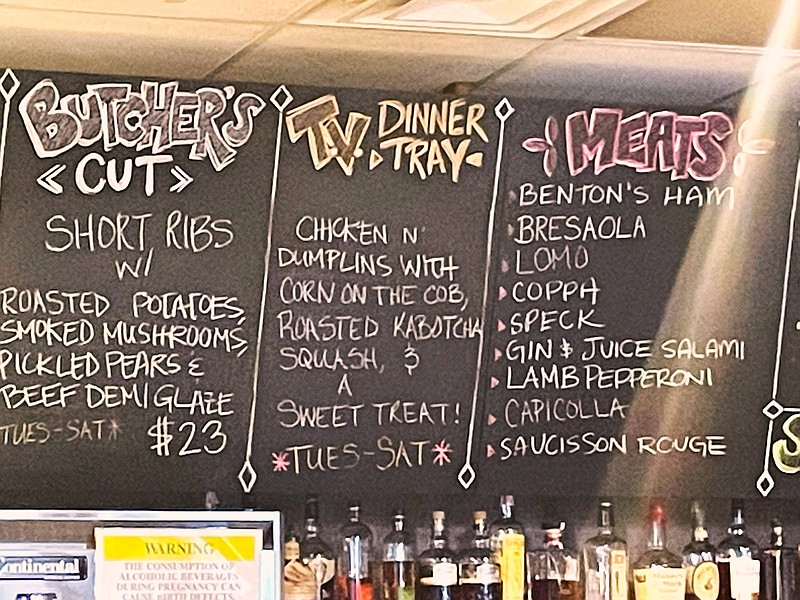 BUTCHER'S
<CUT>
SHORT RIBS
W/
ROASTED POTATOES,
SMOKED MUSHROOMS,
PICKLED PEARS &
BEEF DEMI GLAZE
TUES-SAT*
$23
T.V. DINNER
TRAY
CHICKEN N'
DUMPLINS WITH
CORN ON THE COB,
ROASTED KABOTCHA
SQUASH, &
A
SWEET TREAT!
*TUES-SAT*
MEATS
BENTON'S HAM
BRESAOLA
LOMO
COPPA
SPECK
GIN & JUICE SALAMI
LAMB PEPPERONI
CAPICOLLA
SAUCISSON ROUGE
S
Continental
WARNING
THE CONSUMPTION OF
ALCOHOLIC BEVERAGES
DURING PREGNANCY CAN
CAUSE BIRTH DEFECTS